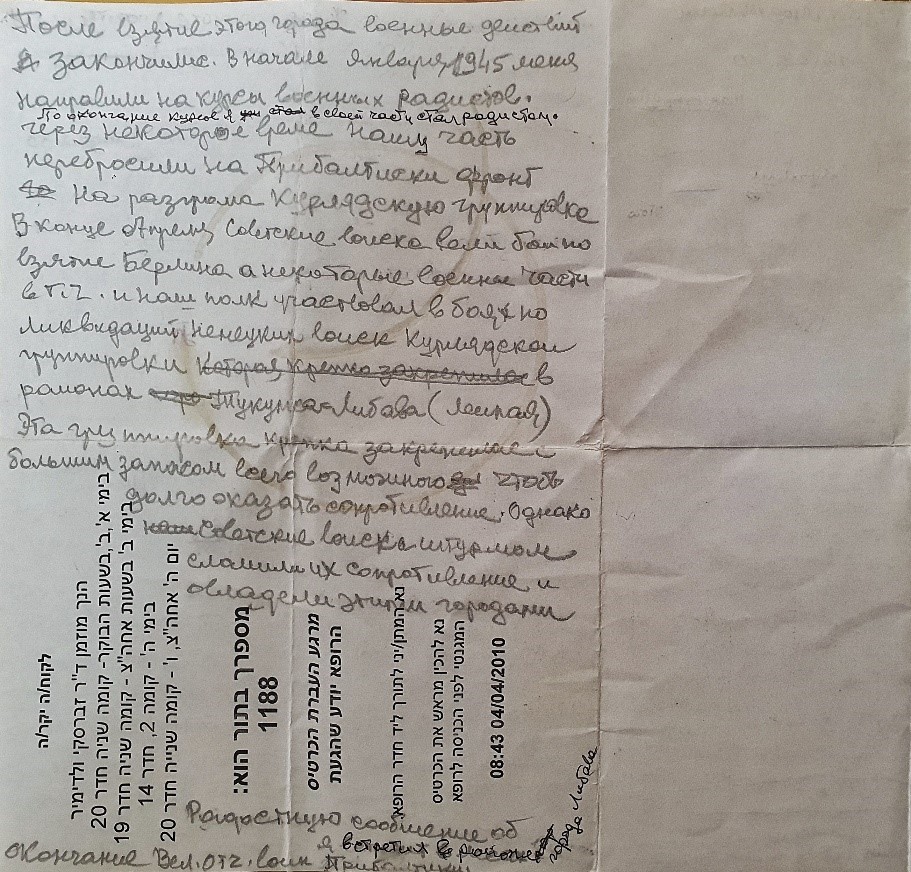 После взятие этого города военные действий
закончилис. В начале января 1945 меня
направили на курсы военных радистов.
По окончание курсов я стал в своей части стал радистом.
через некоторое время нашу часть
перебросили на Прибалтиски фронт
На разгрома Курлядскую группировка
В конце апреля, Советские войска вели бои по
взятие Берлина а некоторые военные части
в т.ч. и наш полк участвовал в боях по
ликвидаций Немецких войск Курляндской
группировки которая крепко закрепилос в
районах Тукумса-Либава (Лепая)
Эта группировка крепка закрепилас с
большим запасом всего возможного чтобы
долго оказать сопротивление. Однако
Советские войска штурмом
сломили их сопротивление и
овладели этими городами
לקוח/ה יקר/ה
הנך מוזמן ד"ר זברסקי ולדימיר
בימי א',ב',בשעות הבוקר- קומה שניה חדר 20
בימי ב' בשעות אחה"צ - קומה שניה חדר 19
בימי ה' - קומה 2, חדר 14
יום ה' אחה"צ, ו' - קומה שנייה חדר 20
מספרך בתור הוא:
1188
מרגע העברת הכרטיס
הרופא יודע שהגעת
נא להמתין/ני לתורך ליד חדר הרופא.
נא להכין מראש את הכרטיס
המגנטי לפני הכניסה לרופא
08:43 04/04/2010
Радостную сообщение об
окончание Вел. отч. воин я встретил в районе
города Либава
Прибалтики